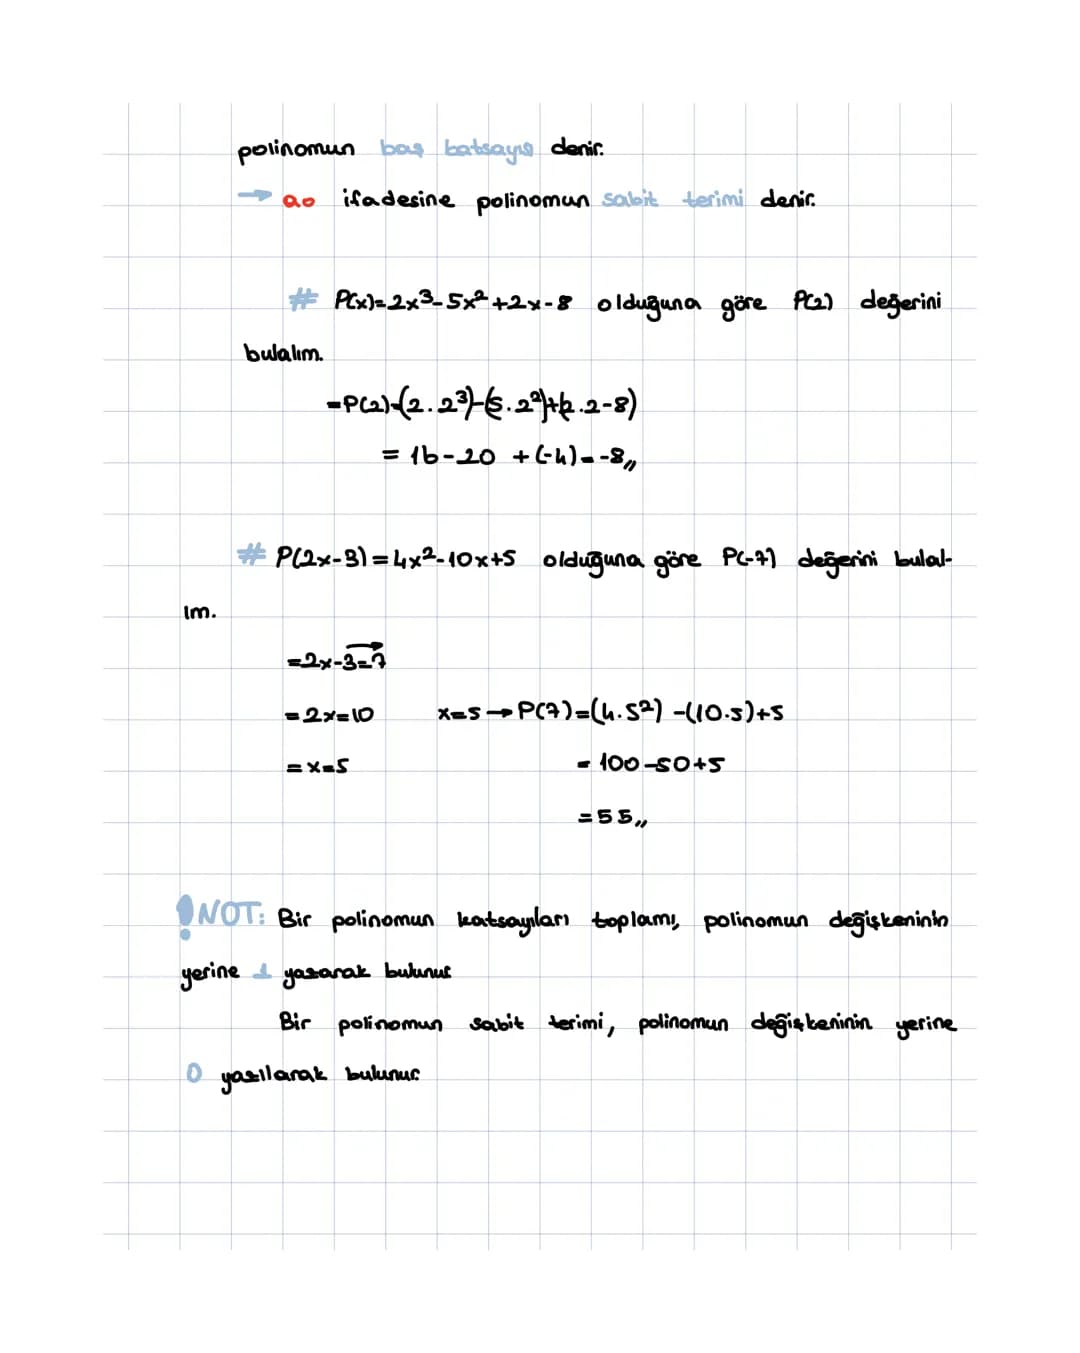 polinomun baş katsayısı denir.
→ a₀ ifadesine polinomun sabit terimi denir.
# P(x)=2x³-5x²+2x-8 olduğuna göre P(2) değerini
bulalım.
=P(2)=(2.2³)-(5.2²)+(2.2-8)
= 16-20 +(-4)=-8,,
# P(2x-3)=4x²-10x+5 olduğuna göre P(-7) değerini bulal-
ım.
=2x-3=7
=2x=10 x=5→P(7)=(4.5²) -(10.5)+5
=x=5 = 100-50+5
=55,,
!NOT: Bir polinomun katsayıları toplamı, polinomun değişkeninin
yerine 1 yazarak bulunur
Bir polinomun sabit terimi, polinomun değişkeninin yerine
0 yazılarak bulunur.